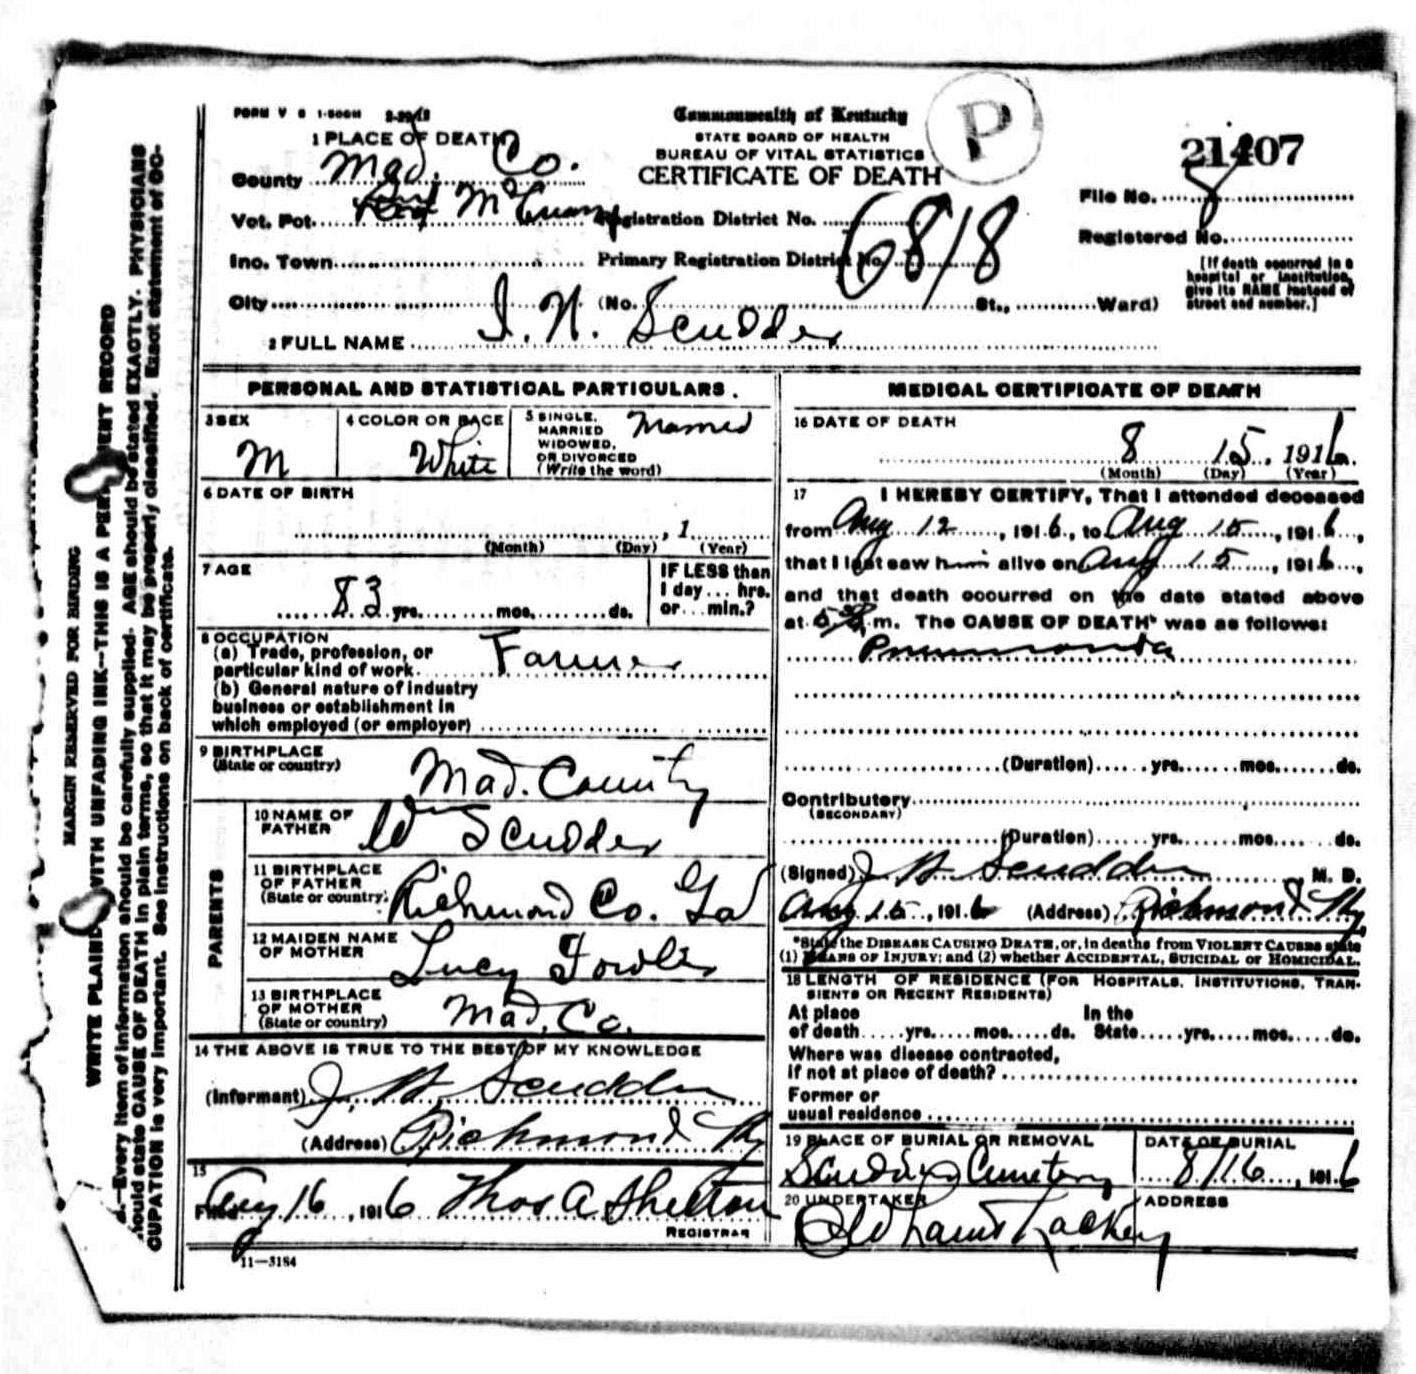 FORM V S 1-500M
Commonwealth of Kentucky
STATE BOARD OF HEALTH
BUREAU OF VITAL STATISTICS
CERTIFICATE OF DEATH
P
21407
1 PLACE OF DEATH
County Mad. Co.
Vot. Pct.
Registration District No.
Inc. Town
Primary Registration District No. 6818
City (No. St., Ward)
File No. 8
Registered No.
[If death occurred in a
hospital or institution,
give its NAME instead of
street and number.]
2 FULL NAME I. N. Scudder
PERSONAL AND STATISTICAL PARTICULARS.
3 SEX
M
4 COLOR OR RACE
White
5 SINGLE,
MARRIED
WIDOWED,
OR DIVORCED
(Write the word)
Married
6 DATE OF BIRTH
, 1
(Month) (Day) (Year)
7 AGE
83 yrs. mos. ds.
IF LESS than
1 day ... hrs.
or ... min.?
8 OCCUPATION
(a) Trade, profession, or
particular kind of work. Farmer
(b) General nature of industry
business or establishment in
which employed (or employer)
9 BIRTHPLACE
(State or country)
Mad. County
PARENTS
10 NAME OF
FATHER
Wm Scudder
11 BIRTHPLACE
OF FATHER
(State or country)
Richmond Co. Ga
12 MAIDEN NAME
OF MOTHER
Lucy Fowler
13 BIRTHPLACE
OF MOTHER
(State or country)
Mad. Co.
14 THE ABOVE IS TRUE TO THE BEST OF MY KNOWLEDGE
(Informant) J. H. Scudder
(Address) Richmond Ky
15
Filed Aug 16, 1916 Thos A Shelton
REGISTRAR
11-3184
MEDICAL CERTIFICATE OF DEATH
16 DATE OF DEATH
8 15, 1916
(Month) (Day) (Year)
17 I HEREBY CERTIFY, That I attended deceased
from Aug 12, 1916, to Aug 15, 1916,
that I last saw him alive on Aug 15, 1916,
and that death occurred on the date stated above
at m. The CAUSE OF DEATH* was as follows:
Pneumonia
(Duration) yrs. mos. ds.
Contributory
(SECONDARY)
(Duration) yrs. mos. ds.
(Signed) J H Scudder M. D.
Aug 15, 1916 (Address) Richmond Ky.
*State the DISEASE CAUSING DEATH, or, in deaths from VIOLENT CAUSES state
(1) MEANS OF INJURY; and (2) whether ACCIDENTAL, SUICIDAL or HOMICIDAL.
18 LENGTH OF RESIDENCE (FOR HOSPITALS, INSTITUTIONS, TRAN-
SIENTS OR RECENT RESIDENTS)
At place In the
of death yrs. mos. ds. State yrs. mos. ds.
Where was disease contracted,
if not at place of death?
Former or
usual residence
19 PLACE OF BURIAL OR REMOVAL
Cemetery
DATE OF BURIAL
8/16, 1916
20 UNDERTAKER
Lackey
ADDRESS
MARGIN RESERVED FOR BINDING
WRITE PLAINLY WITH UNFADING INK—THIS IS A PERMANENT RECORD
B.—Every item of information should be carefully supplied. AGE should be stated EXACTLY. PHYSICIANS
should state CAUSE OF DEATH in plain terms, so that it may be properly classified. Exact statement of OC-
CUPATION is very important. See instructions on back of certificate.